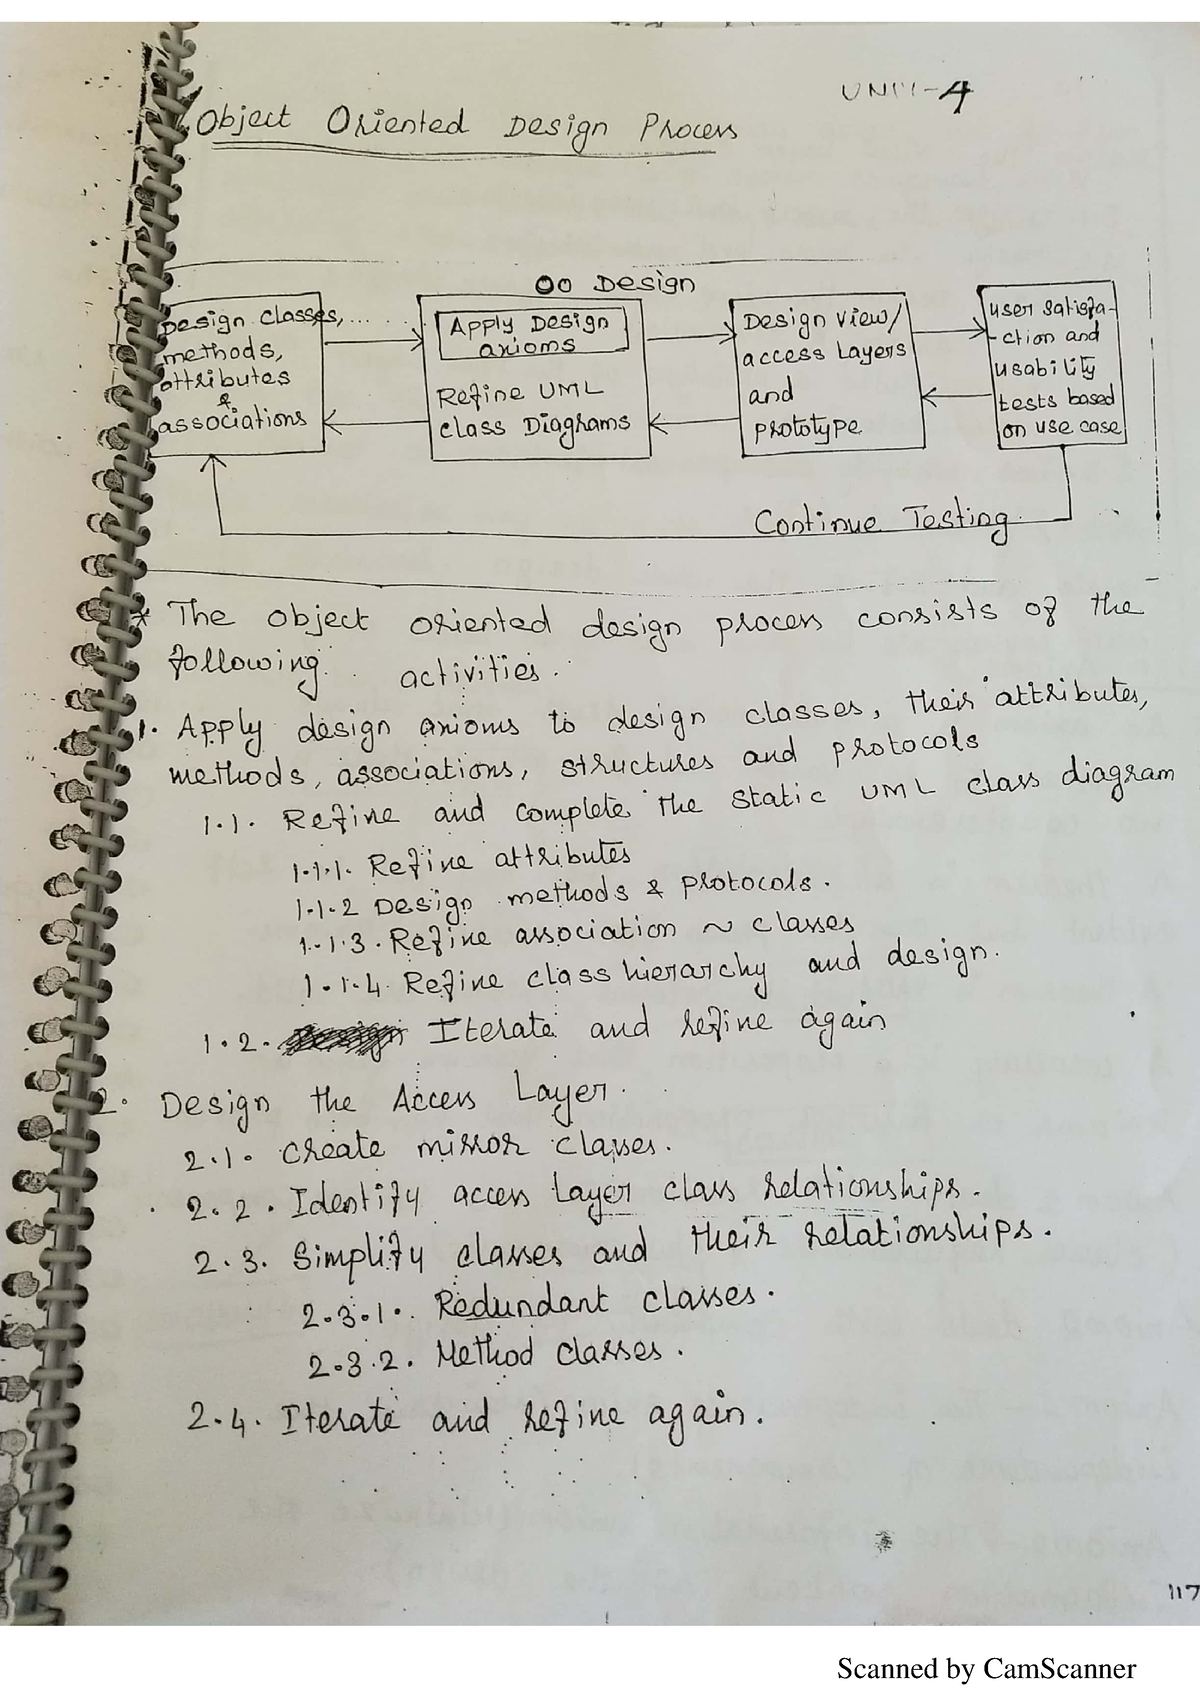 UNIT-4
Object Oriented Design Process
OO Design
Design classes,...
methods,
attributes
&
associations
Apply Design
axioms
Refine UML
class Diagrams
Design view/
access Layers
and
prototype
user satisfa-
-ction and
usability
tests based
on use case
Continue Testing.
* The object oriented design process consists of the
following activities.
1. Apply design axioms to design classes, their attributes,
methods, associations, structures and protocols
1.1. Refine and complete the static UML class diagram
1.1.1. Refine attributes
1.1.2 Design methods & protocols.
1.1.3. Refine association ~ classes
1.1.4. Refine class hierarchy and design.
1.2. Iterate and refine again
2. Design the Access Layer.
2.1. Create mirror classes.
2.2. Identify access layer class relationships.
2.3. Simplify classes and their relationships.
2.3.1. Redundant classes.
2.3.2. Method classes.
2.4. Iterate and refine again.
117
Scanned by CamScanner